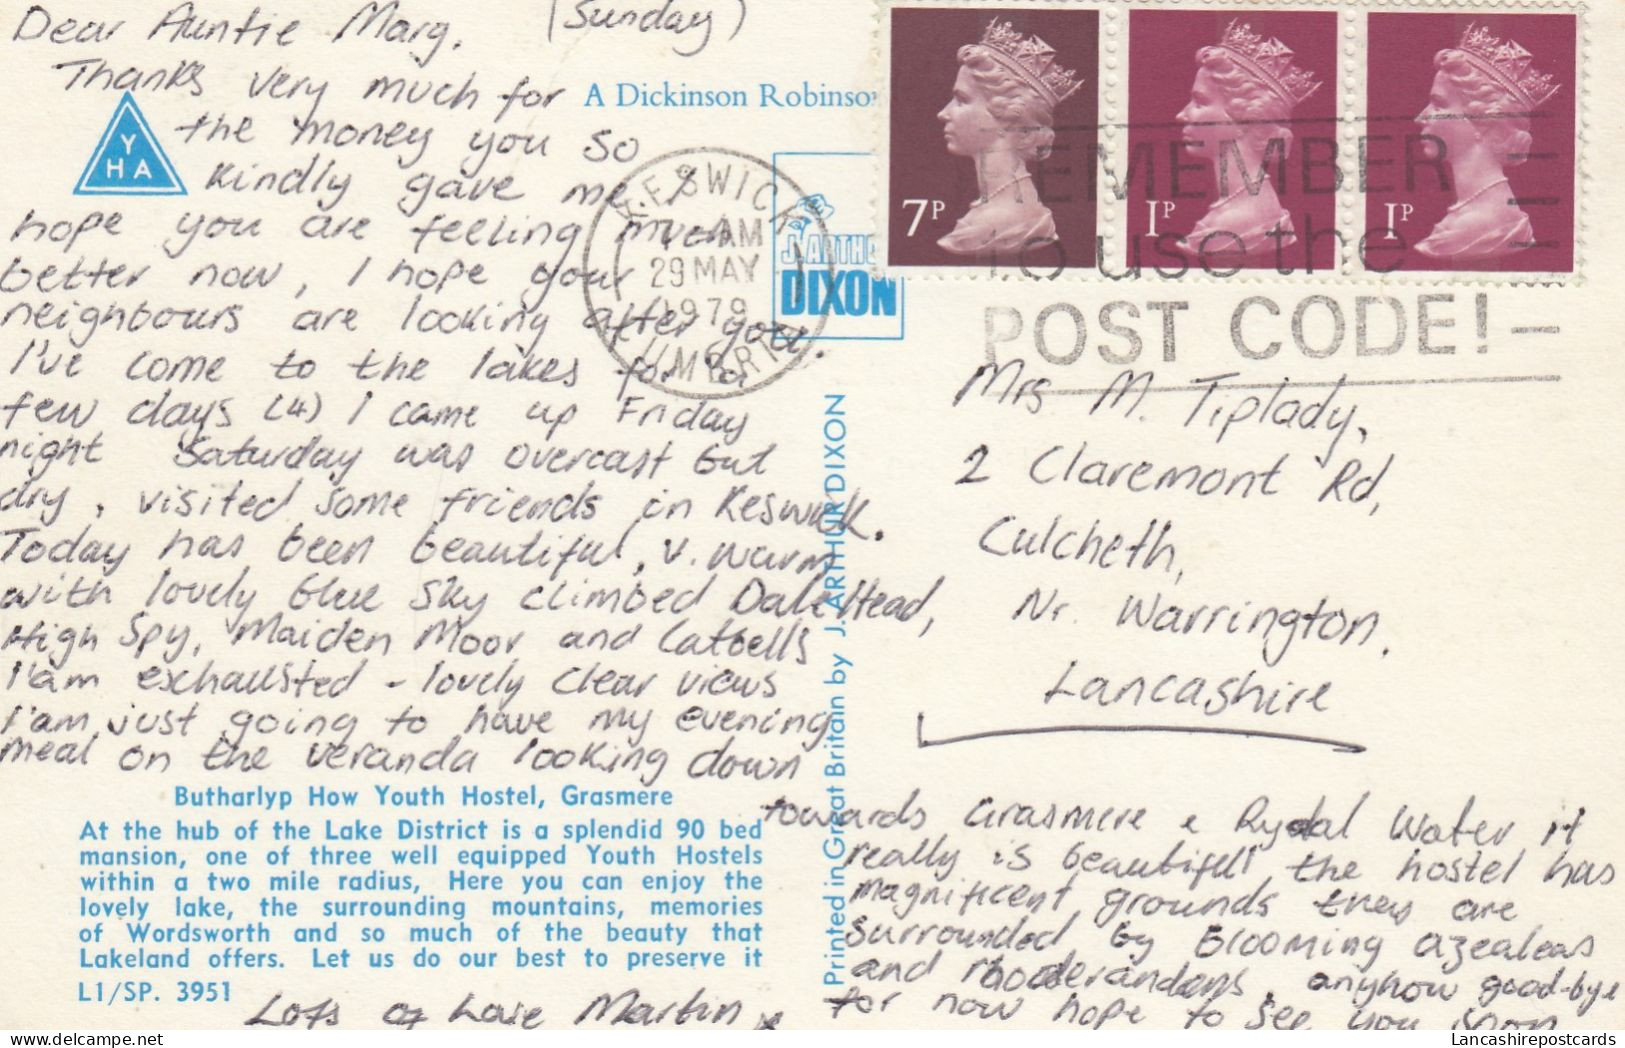 Dear Auntie Marg. (Sunday)
Thanks very much for
the money you so
kindly gave me I
hope you are feeling much
better now, I hope your
neighbours are looking after you.
I've come to the lakes for a
few days (4) I came up Friday
night Saturday was overcast but
dry, visited some friends in Keswick.
Today has been beautiful, v. warm
with lovely blue sky climbed Dale Head,
High Spy, Maiden Moor and Catbells
I'am exchausted - lovely clear views
I'am just going to have my evening
meal on the veranda looking down
towards Grasmere & Rydal Water it
really is beautifull the hostel has
magnificent grounds they are
surrounded by blooming azealeas
and rhoderandans, anyhow good-bye
for now hope to see you soon
Lots of Love Martin x
Y
HA
A Dickinson Robinson
J. ARTHUR
DIXON
KESWICK
7 - AM
29 MAY
1979
CUMBRIA
7P
1P
1P
REMEMBER
to use the
POST CODE!
Mrs M. Tiplady,
2 Claremont Rd,
Culcheth,
Nr. Warrington.
Lancashire
Printed in Great Britain by J. ARTHUR DIXON
Butharlyp How Youth Hostel, Grasmere
At the hub of the Lake District is a splendid 90 bed
mansion, one of three well equipped Youth Hostels
within a two mile radius, Here you can enjoy the
lovely lake, the surrounding mountains, memories
of Wordsworth and so much of the beauty that
Lakeland offers. Let us do our best to preserve it
L1/SP. 3951
Lancashirepostcards